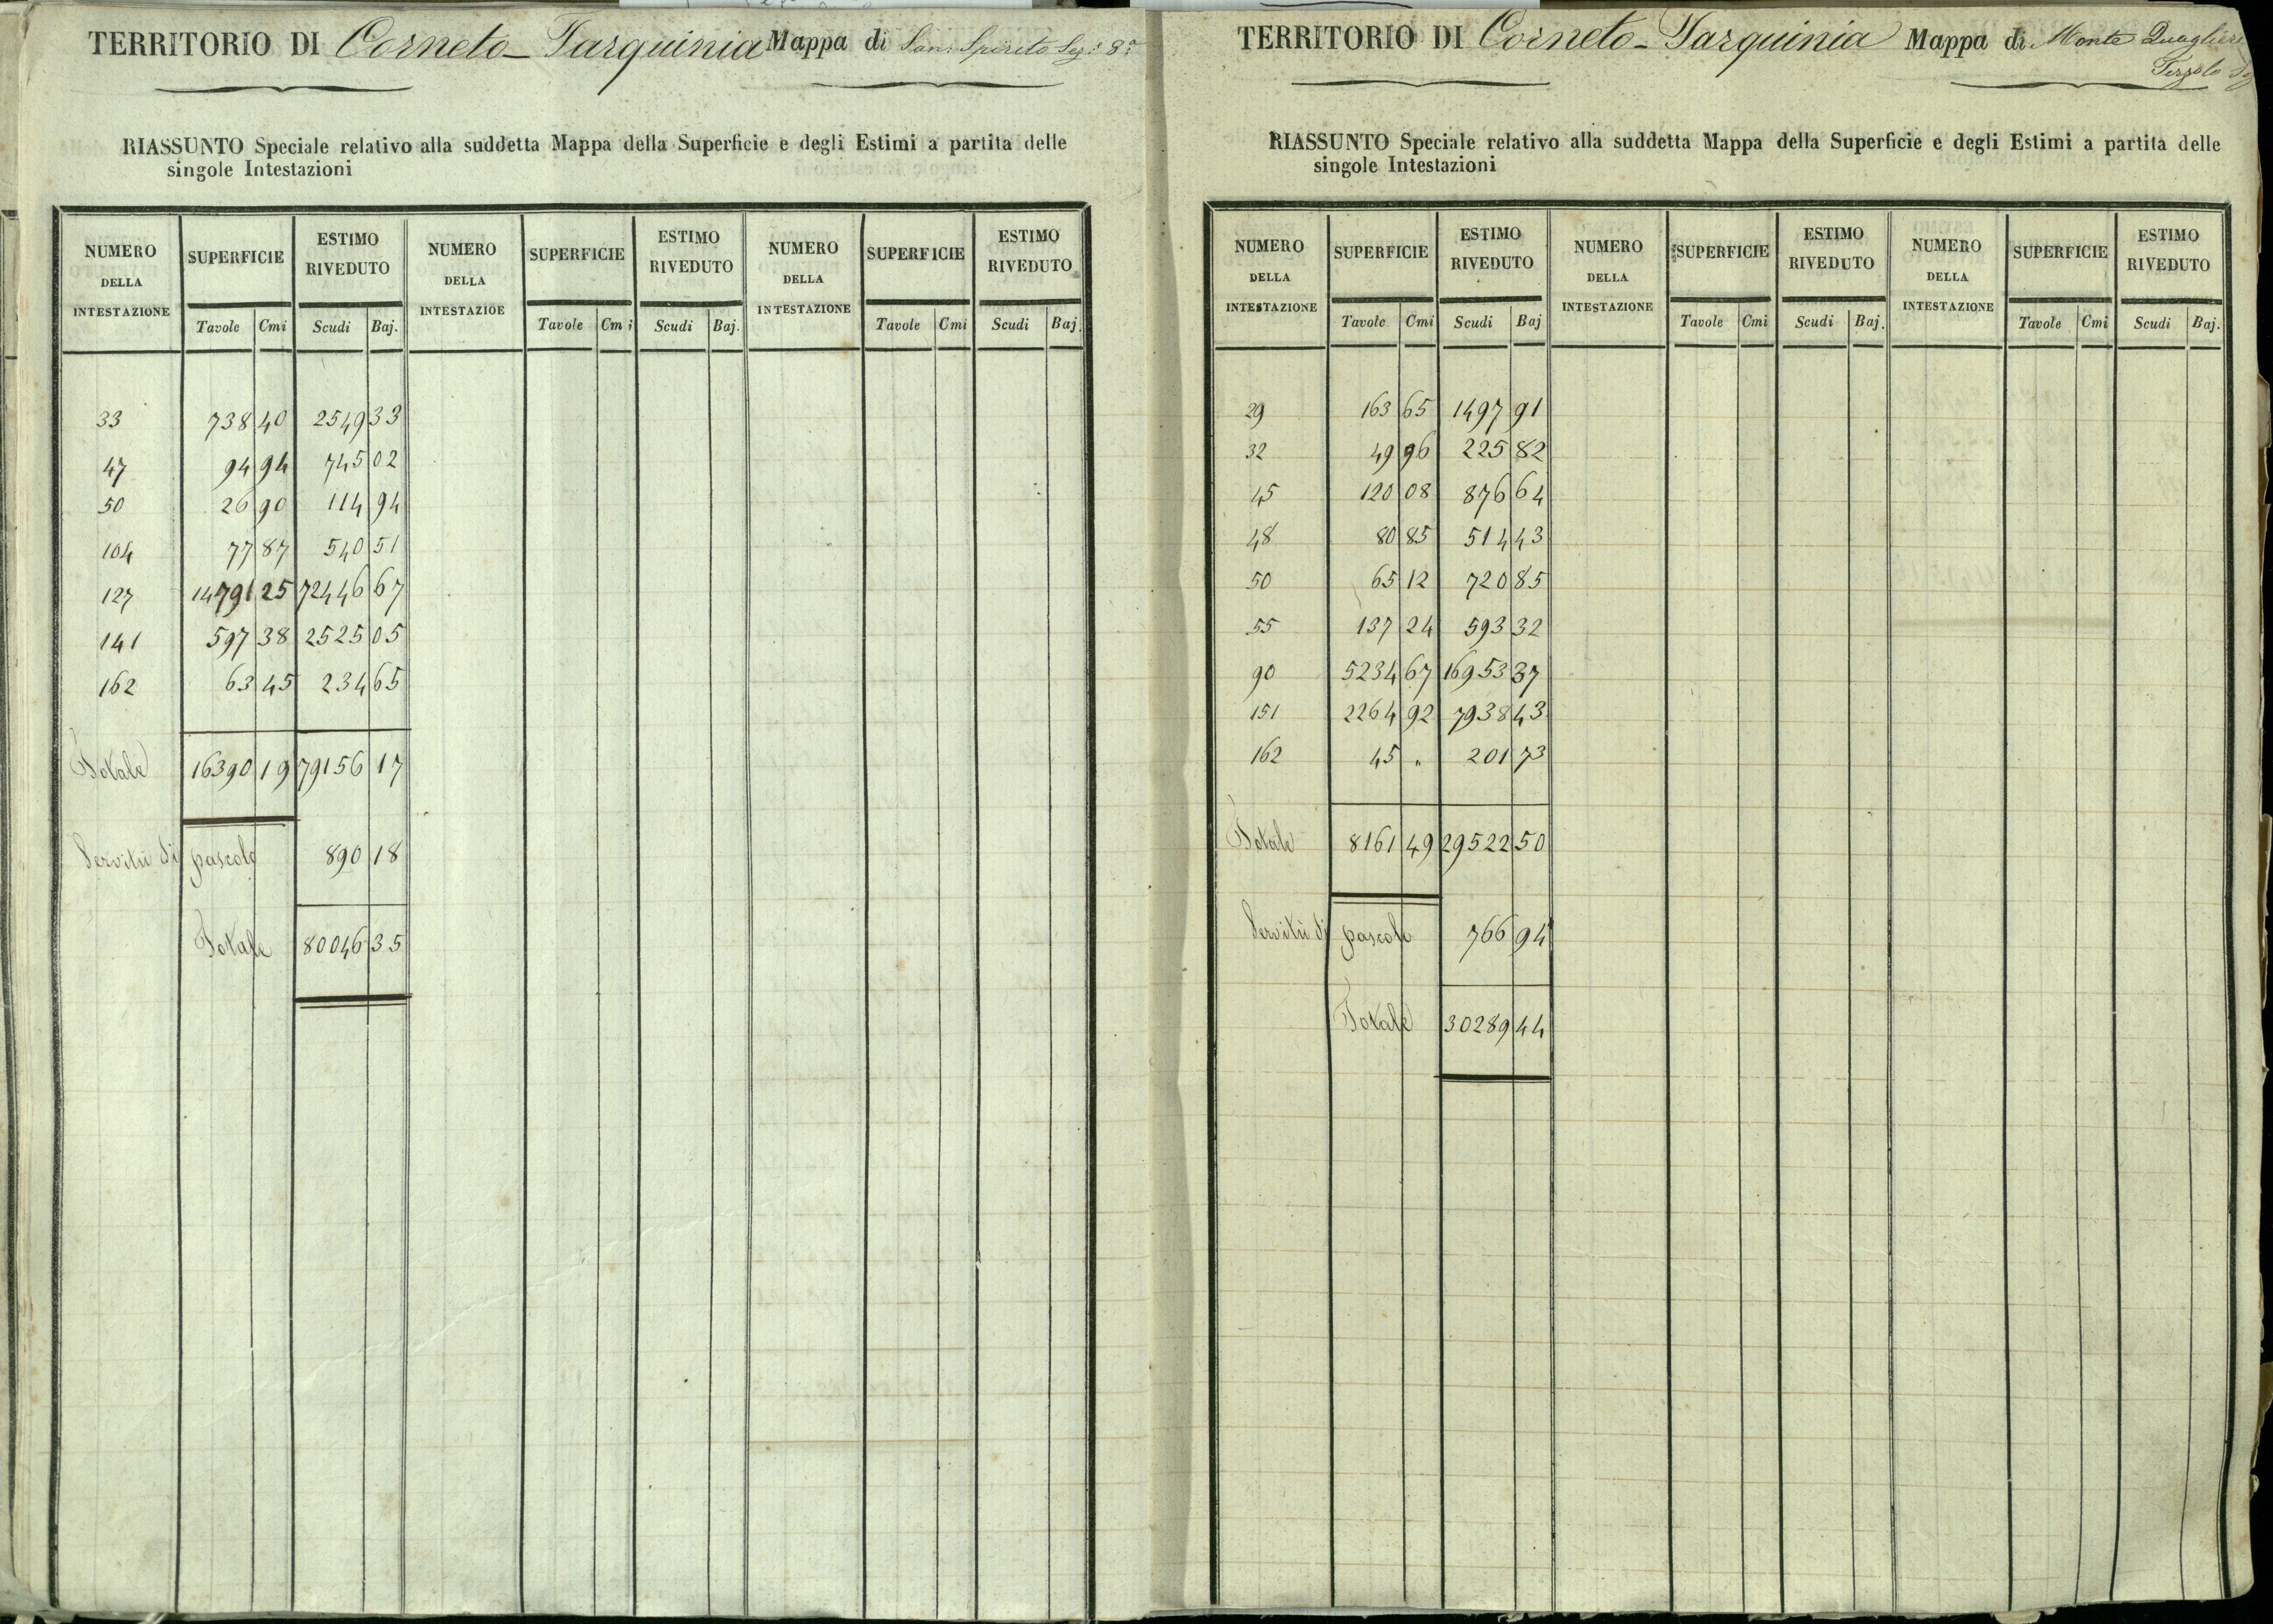 TERRITORIO DI Corneto-Tarquinia Mappa di San Spirito Sez: 8ª
RIASSUNTO Speciale relativo alla suddetta Mappa della Superficie e degli Estimi a partita delle
singole Intestazioni
NUMERO DELLA INTESTAZIONE SUPERFICIE ESTIMO RIVEDUTO NUMERO DELLA INTESTAZIOE SUPERFICIE ESTIMO RIVEDUTO NUMERO DELLA INTESTAZIONE SUPERFICIE ESTIMO RIVEDUTO
Tavole Cmi Scudi Baj. Tavole Cmi Scudi Baj. Tavole Cmi Scudi Baj.
33 738 40 2549 33
47 94 94 745 02
50 26 90 114 94
104 77 87 540 51
127 14791 25 72446 67
141 597 38 2525 05
162 63 45 234 65
Totale 16390 19 79156 17
Servitù di pascolo 890 18
Totale 80046 35
TERRITORIO DI Corneto-Tarquinia Mappa di Monte Quagliere
Terzolo
RIASSUNTO Speciale relativo alla suddetta Mappa della Superficie e degli Estimi a partita delle
singole Intestazioni
NUMERO DELLA INTESTAZIONE SUPERFICIE ESTIMO RIVEDUTO NUMERO DELLA INTESTAZIONE SUPERFICIE ESTIMO RIVEDUTO NUMERO DELLA INTESTAZIONE SUPERFICIE ESTIMO RIVEDUTO
Tavole Cmi Scudi Baj Tavole Cmi Scudi Baj. Tavole Cmi Scudi Baj.
29 163 65 1497 91
32 49 96 225 82
45 120 08 876 64
48 80 85 514 43
50 65 12 720 85
55 137 24 593 32
90 5234 67 16953 37
151 2264 92 7938 43
162 45 „ 201 73
Totale 8161 49 29522 50
Servitù di pascolo 766 94
Totale 30289 44